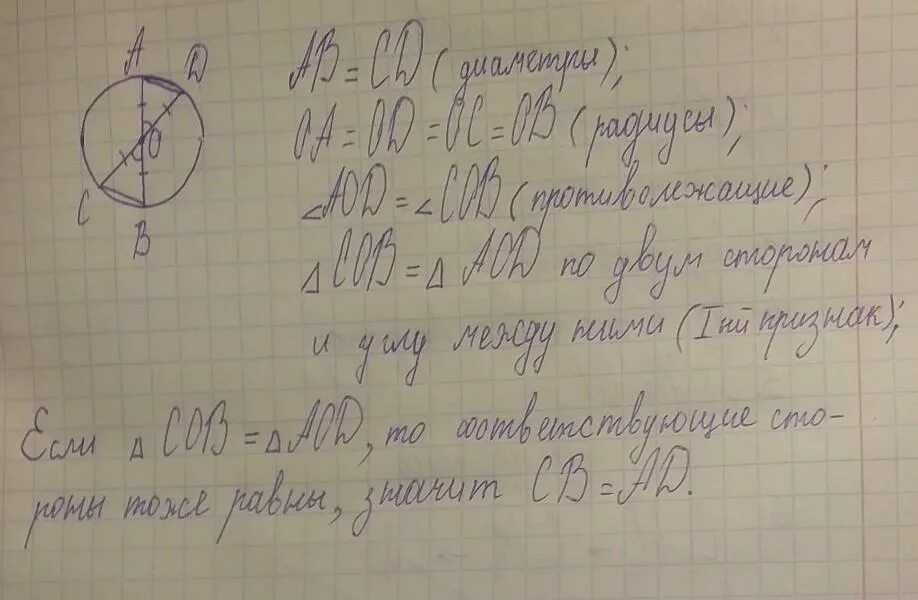 A D
O
C
B
AB = CD (диаметры);
OA = OD = OC = OB (радиусы);
∠AOD = ∠COB (противолежащие);
△COB = △AOD по двум сторонам
и углу между ними (Iый признак);
Если △COB = △AOD, то соответствующие сто-
роны тоже равны, значит CB = AD.